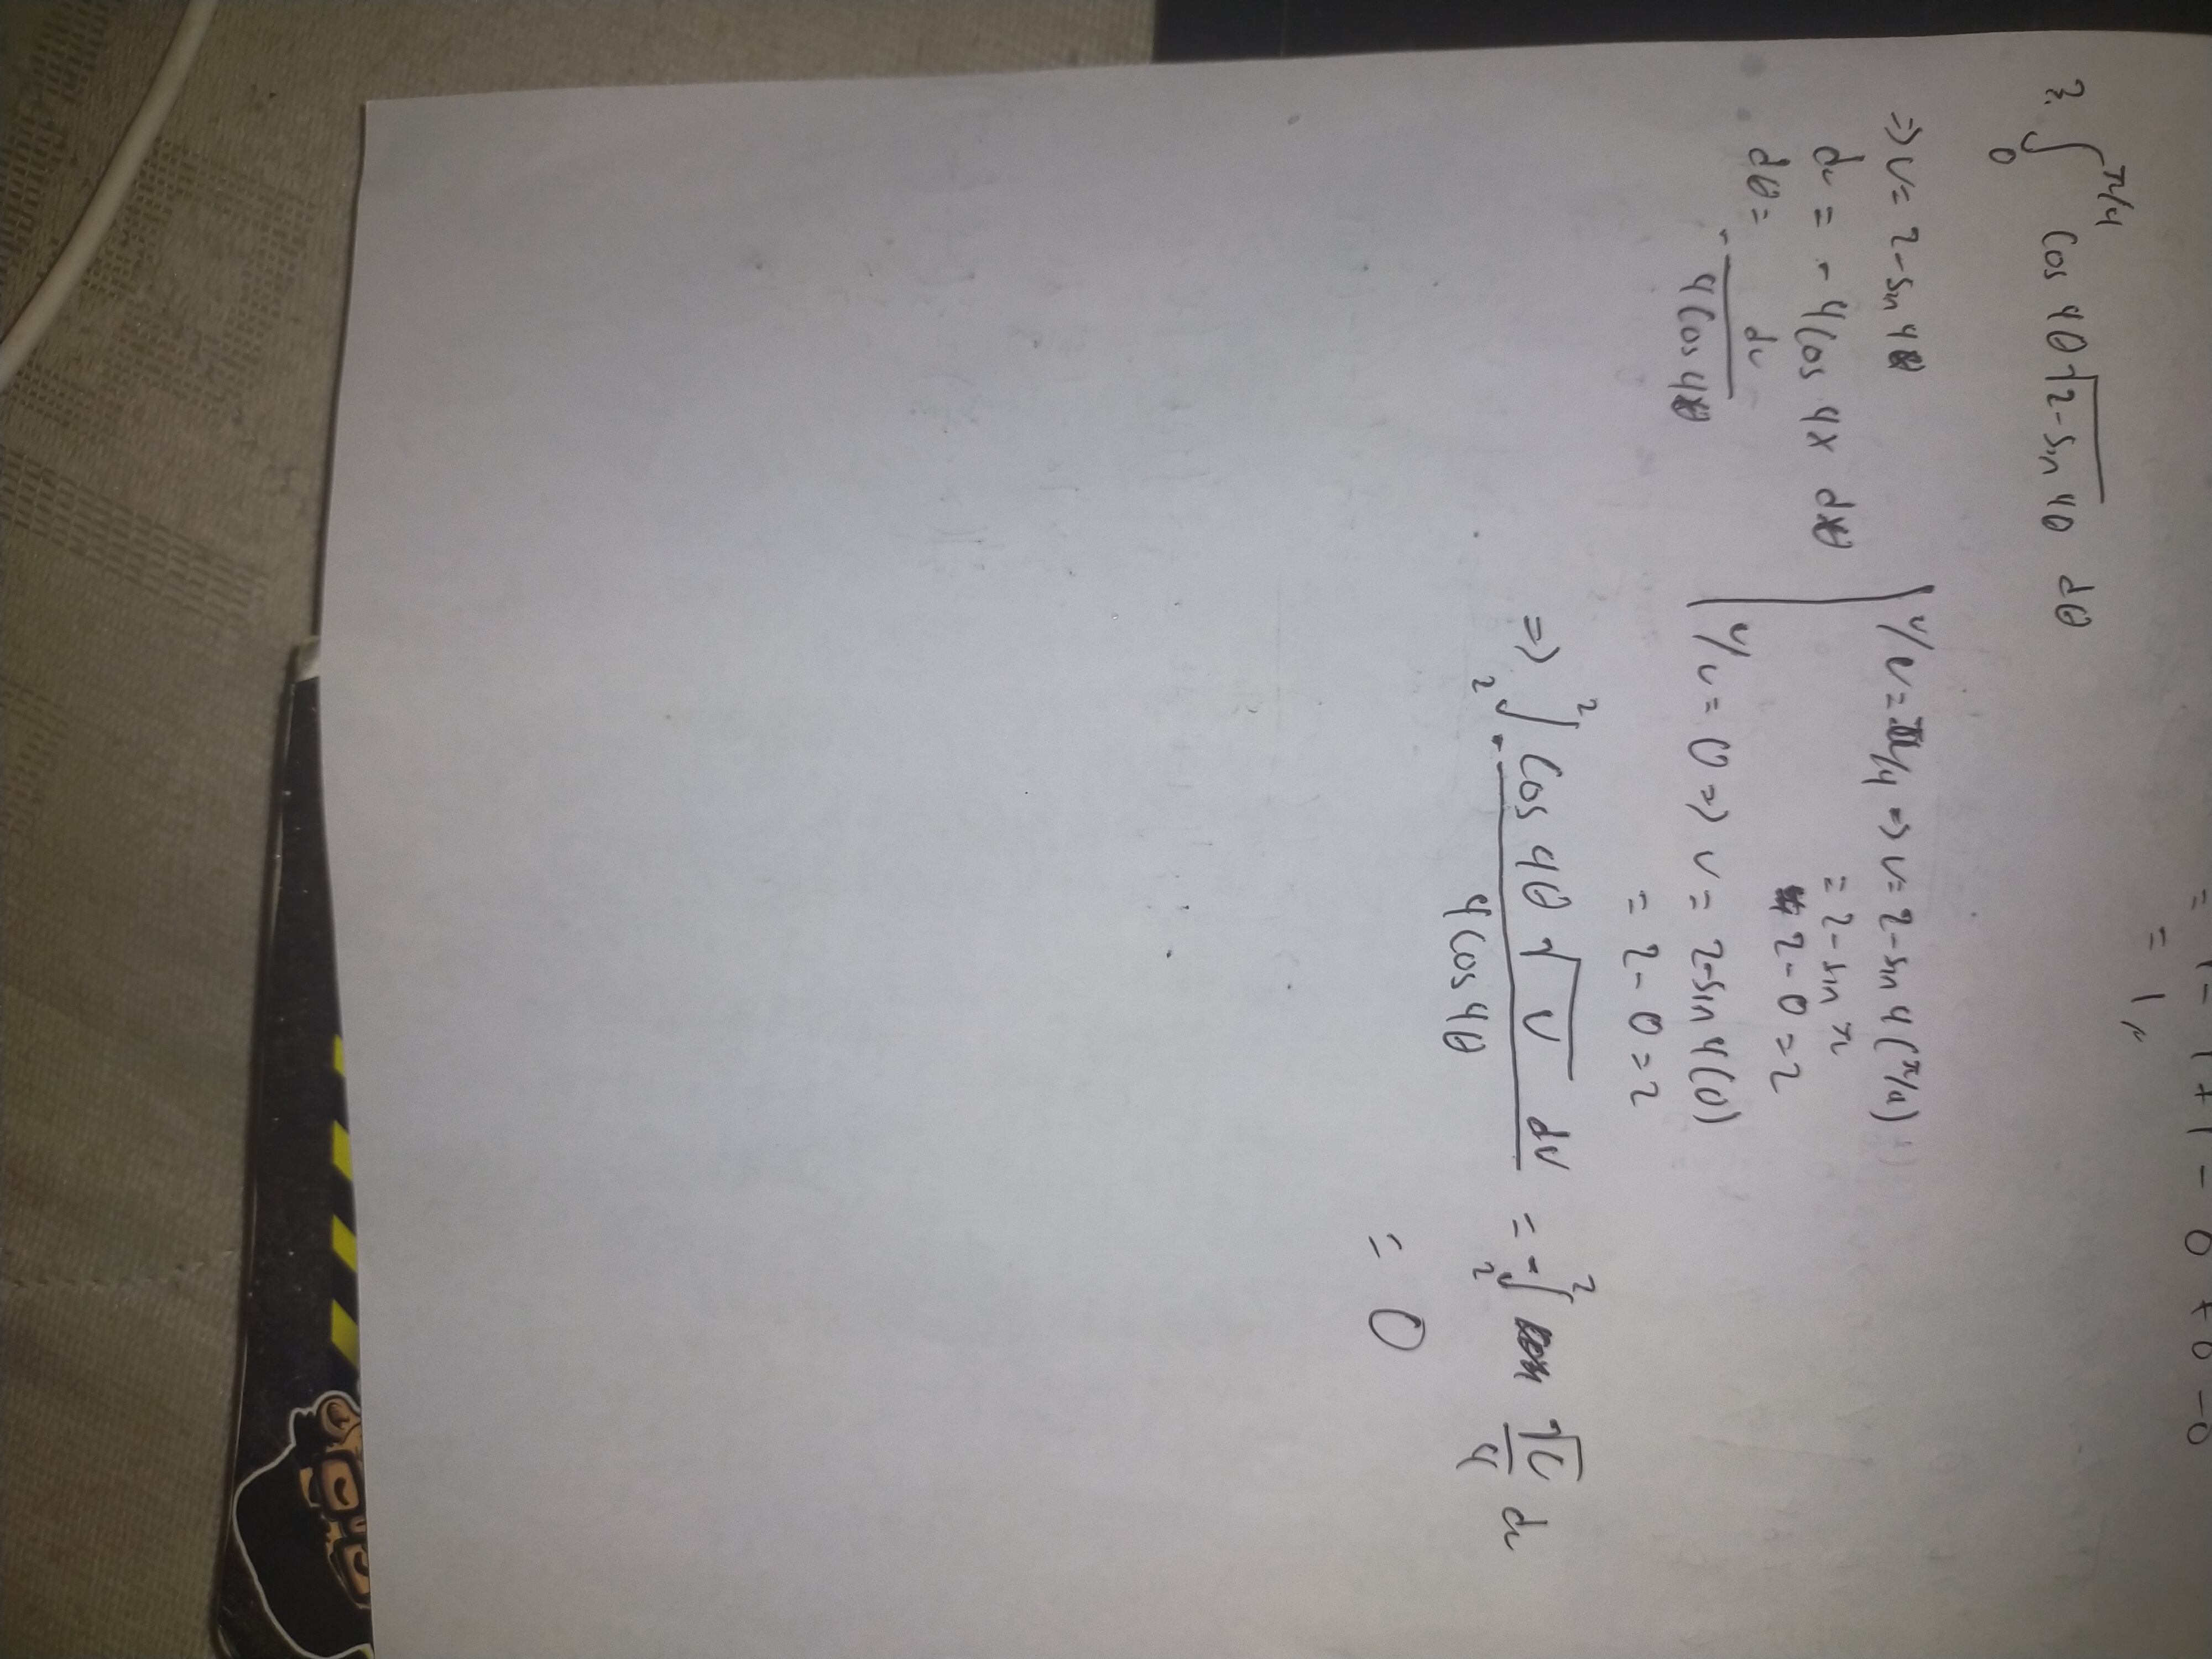 = 1 - 1 + 1 - 0 + 0 - 0
= 1
3. ∫₀^{π/4} cos 4θ √(2-sin 4θ) dθ
=> u = 2 - sin 4θ
du = - 4 cos 4x dθ
dθ = - du / 4 cos 4θ
u/ u = π/4 => u = 2 - sin 4 (π/4)
= 2 - sin π
2 - 0 = 2
u/ u = 0 => u = 2 - sin 4(0)
= 2 - 0 = 2
=> ₂∫² - cos 4θ √u du / 4 cos 4θ = - ₂∫² √u / 4 du
= 0